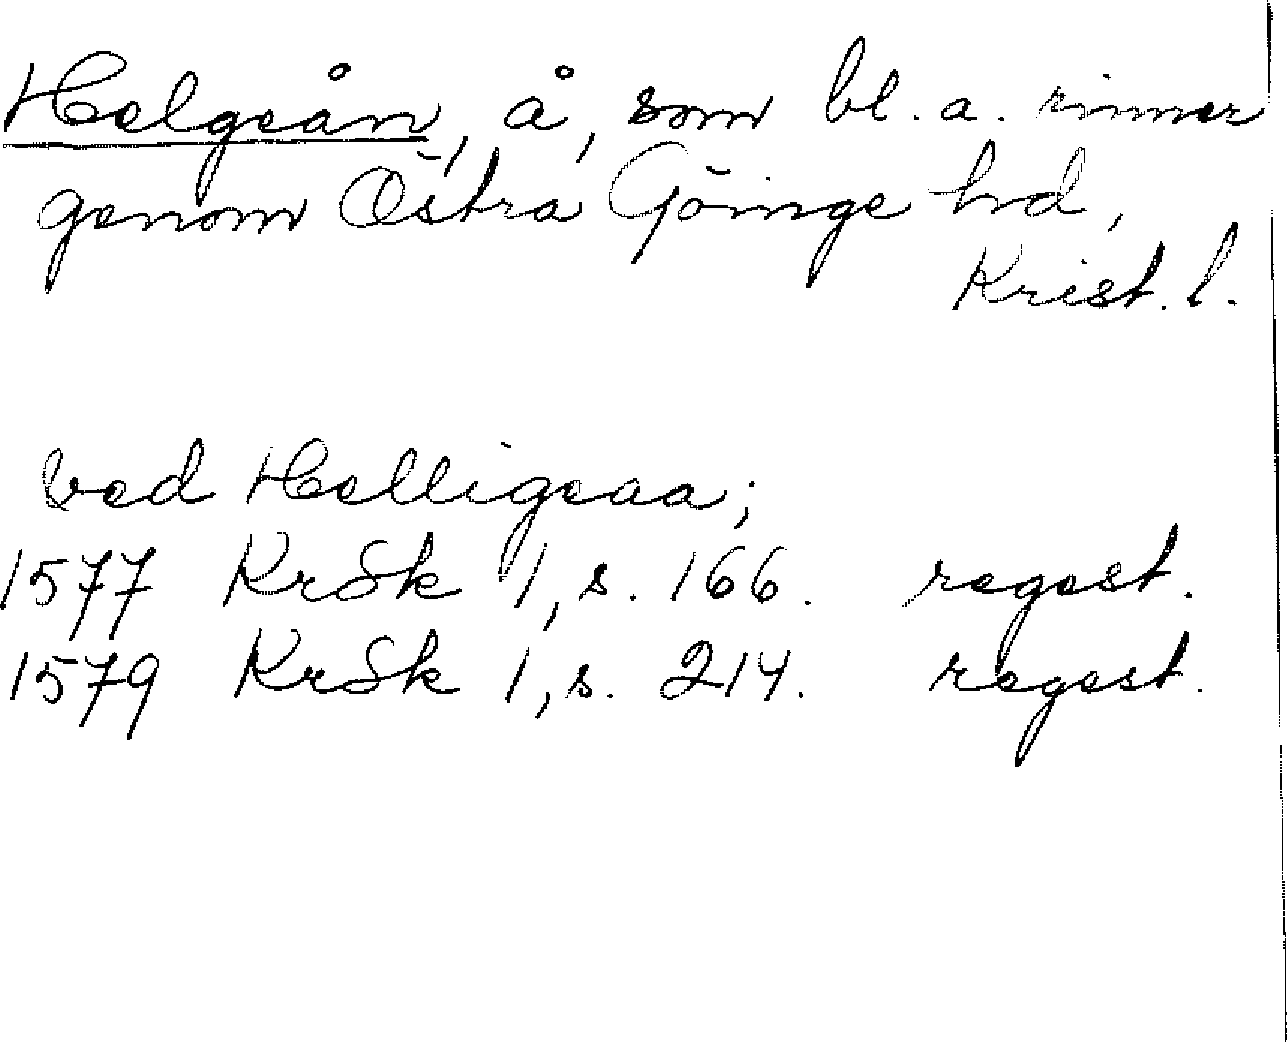 Helgeån, å, som bl. a. rinner
genom Östra Göinge hd,
Krist. l.
ved Helligeaa;
1577 KrSk 1, s. 166. regest.
1579 KrSk 1, s. 214. regest.